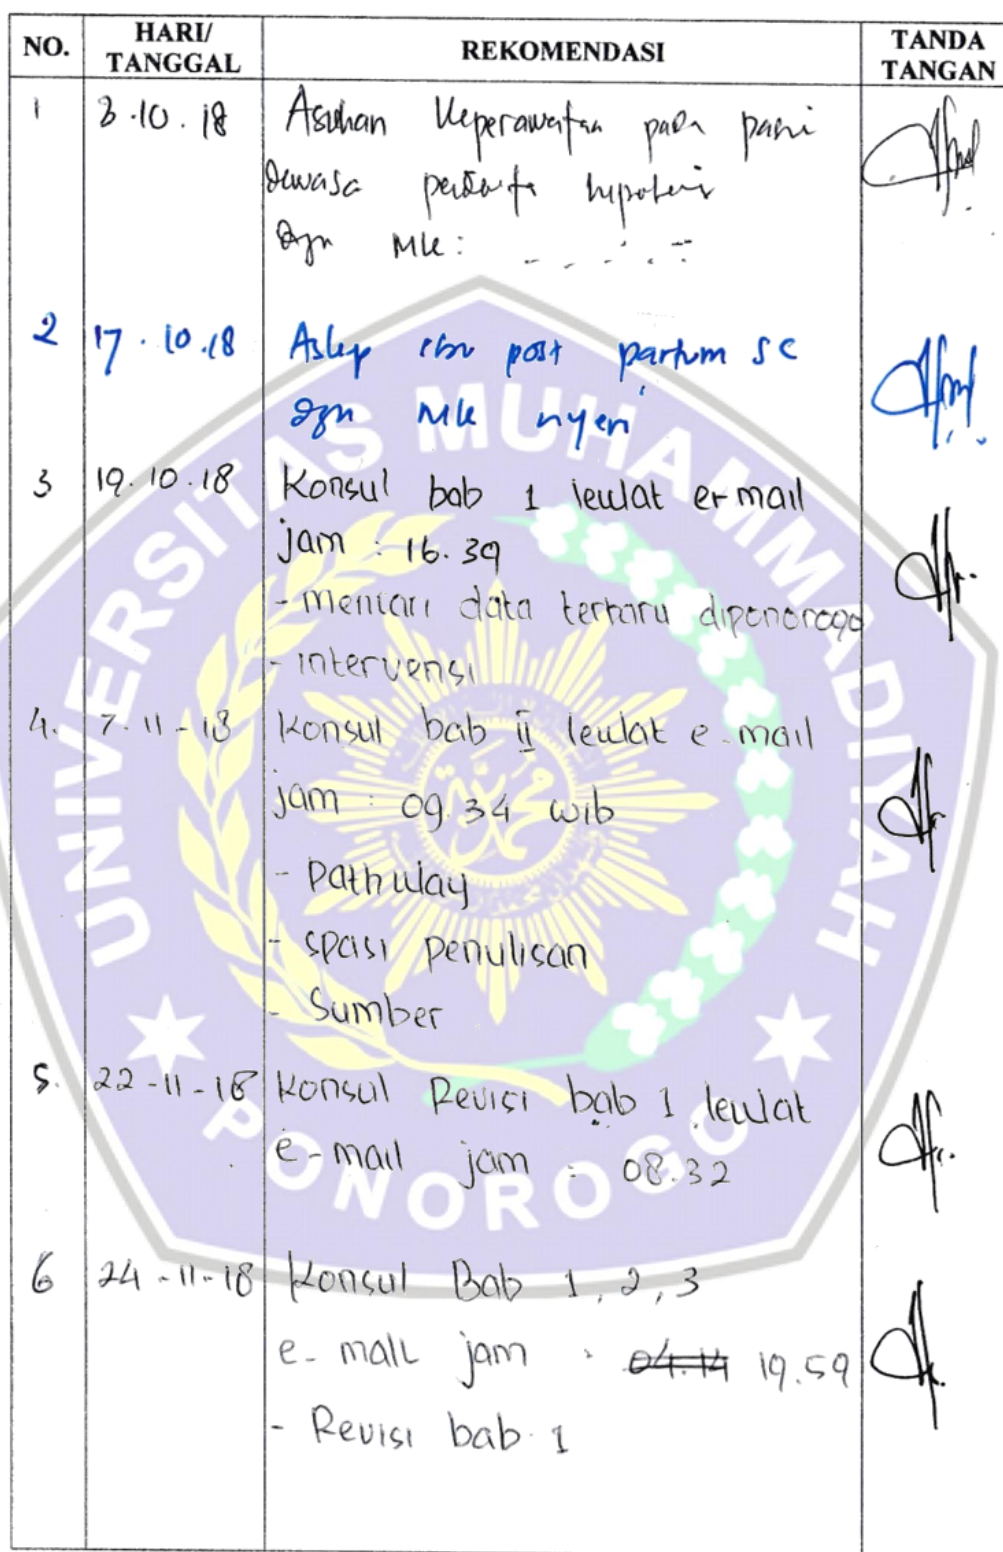 NO. HARI/ TANGGAL REKOMENDASI TANDA TANGAN
1 3.10.18 Asuhan Keperawatan pada
dewasa
dgn MK:
2 17.10.18 Askep ibu post partum SC
dgn MK nyeri
3 19.10.18 Konsul bab 1 lewat e-mail
jam : 16.39
- mencari data terbaru diponorogo
- intervensi
4. 7-11-18 Konsul bab ii lewat e-mail
jam : 09.34 wib
- Pathway
- spasi penulisan
- Sumber
5. 22-11-18 Konsul Revisi bab 1 lewat
e-mail jam : 08.32
6 24-11-18 Konsul Bab 1, 2, 3
e-mail jam : 04.14 19.59
- Revisi bab 1
UNIVERSITAS MUHAMMADIYAH
PONOROGO